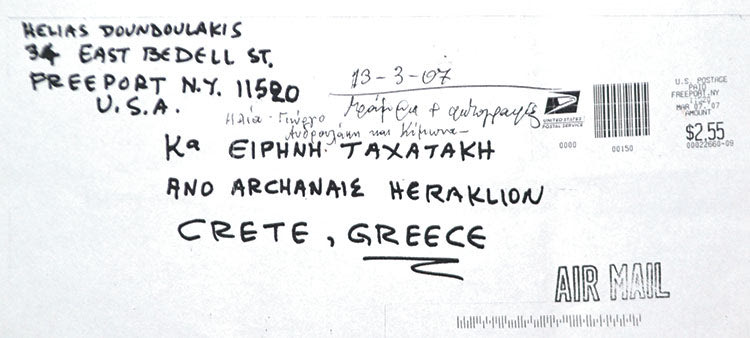 HELIAS DOUNDOULAKIS
34 EAST BEDELL ST.
FREEPORT N.Y. 11520
U.S.A.
13-3-07
Γράμμα + φωτογραφίες
Ηλία - Γιώργο
Ανδρουλάκη και Κίμωνα
UNITED STATES
POSTAL SERVICE
0000
00150
U.S. POSTAGE
PAID
FREEPORT, NY
MAR 07, '07
AMOUNT
$2.55
00022660-09
Κα ΕΙΡΗΝΗ ΤΑΧΑΤΑΚΗ
ANO ARCHANAIS HERAKLION
CRETE, GREECE
AIR MAIL